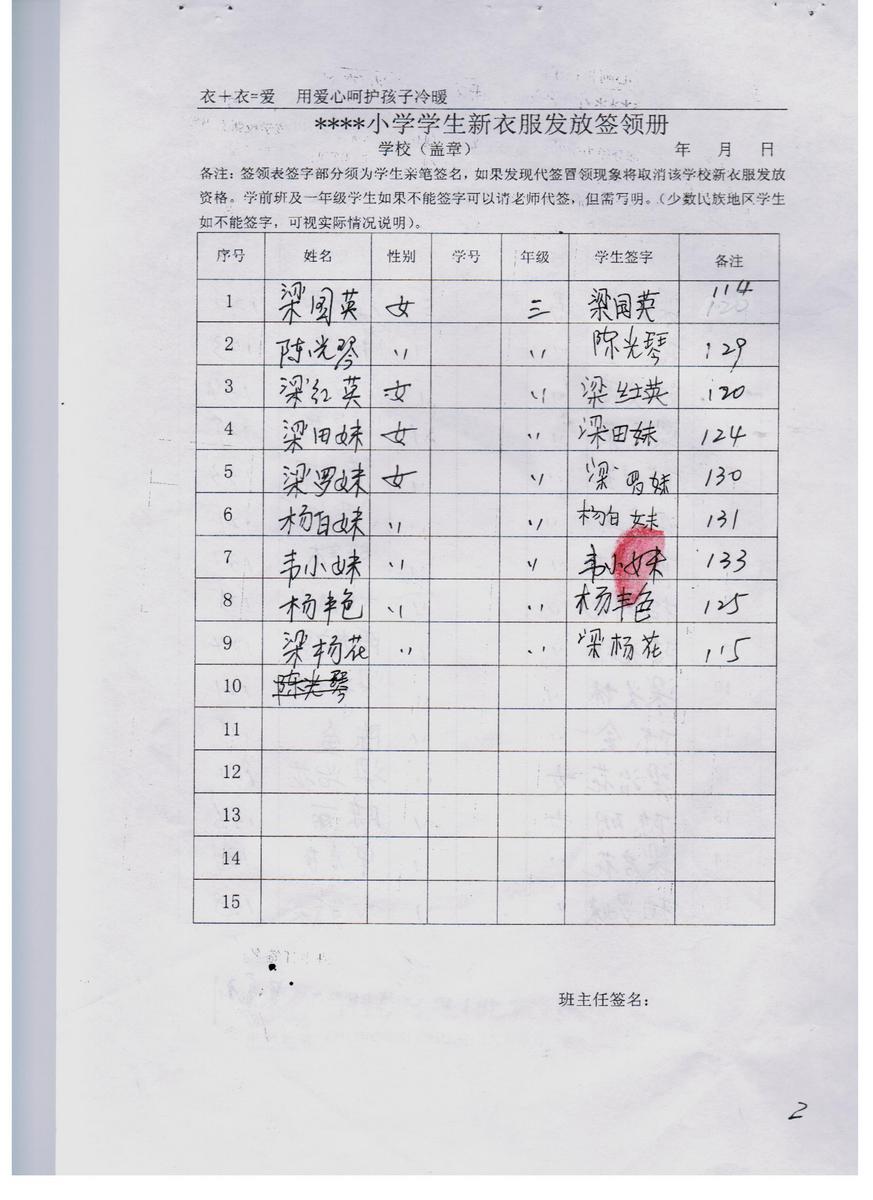 衣＋衣=爱 用爱心呵护孩子冷暖
****小学学生新衣服发放签领册
学校（盖章） 年 月 日
备注：签领表签字部分须为学生亲笔签名，如果发现代签冒领现象将取消该学校新衣服发放
资格。学前班及一年级学生如果不能签字可以请老师代签，但需写明。（少数民族地区学生
如不能签字，可视实际情况说明）。
序号 姓名 性别 学号 年级 学生签字 备注
1 梁国英 女 三 梁国英 114
2 陈光琴 〃 〃 陈光琴 129
3 梁红英 女 〃 梁红英 120
4 梁田妹 女 〃 梁田妹 124
5 梁罗妹 女 〃 梁罗妹 130
6 杨白妹 〃 〃 杨白妹 131
7 韦小妹 〃 〃 韦小妹 133
8 杨丰色 〃 〃 杨丰色 125
9 梁杨花 〃 〃 梁杨花 115
10 陈光琴
11
12
13
14
15
班主任签名：
2